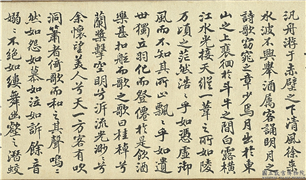 汎舟游于赤壁之下清風徐来
水波不興舉酒屬客誦明月之
詩歌窈窕之章少焉月出於東
山之上裴徊於斗牛之間白露橫
江水光接天縱一葦之所如陵
萬頃之茫然浩乎如憑虛御
風而不知其所止飄乎如遺
世獨立羽化而登僊於是飲酒
樂甚扣舷而歌之歌曰桂棹兮
蘭槳擊空明兮泝流光渺兮
余懷望美人兮天一方客有吹
洞簫者倚歌而和之其聲嗚
然如怨如慕如泣如訴餘音
嫋不絕如縷舞幽壑之潛蛟